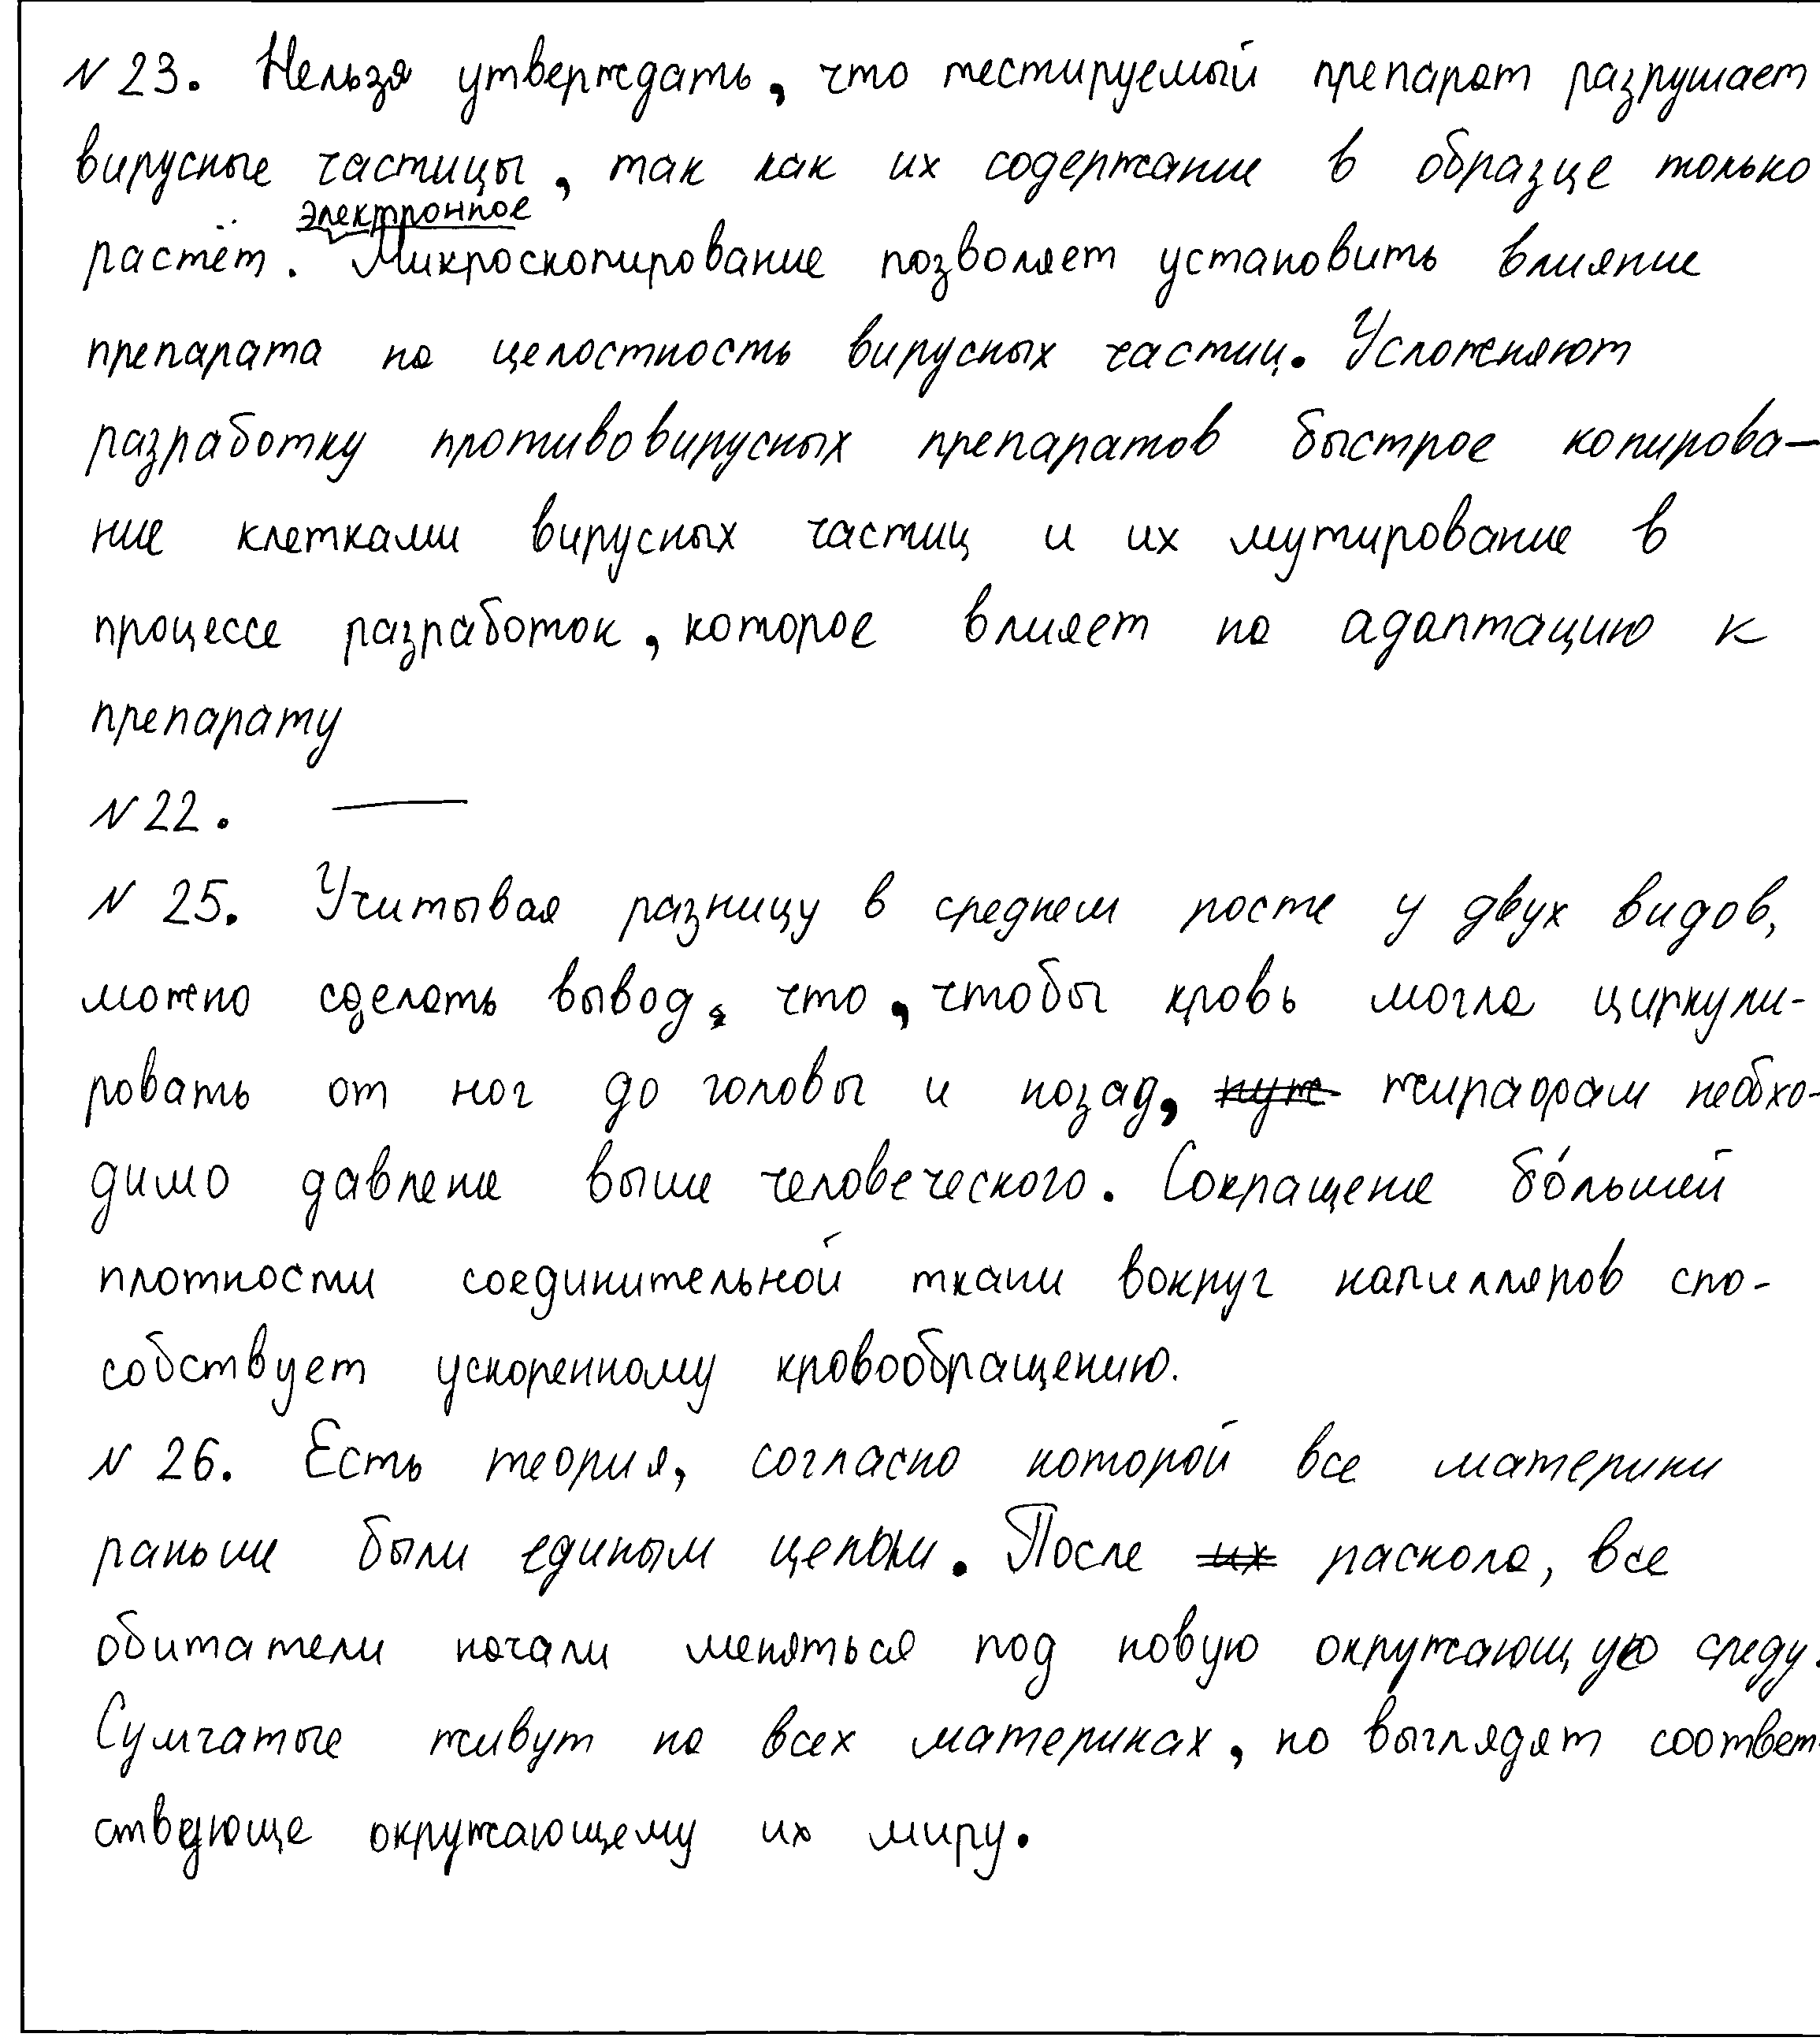 № 23. Нельзя утверждать, что тестируемый препарат разрушает
вирусные частицы, так как их содержание в образце только
электронное
растёт. Микроскопирование позволяет установить влияние
препарата на целостность вирусных частиц. Усложняют
разработку противовирусных препаратов быстрое копирова-
ние клетками вирусных частиц и их мутирование в
процессе разработок, которое влияет на адаптацию к
препарату
№ 22. —
№ 25. Учитывая разницу в среднем росте у двух видов,
можно сделать вывод, что, чтобы кровь могла циркули-
ровать от ног до головы и назад, нуж жирафам необхо-
димо давление выше человеческого. Сокращение бо́льшей
плотности соединительной ткани вокруг капилляров спо-
собствует ускоренному кровообращению.
№ 26. Есть теория, согласно которой все материки
раньше были единым целым. После их раскола, все
обитатели начали меняться под новую окружающую среду.
Сумчатые живут на всех материках, но выглядят соответ-
ствующе окружающему их миру.